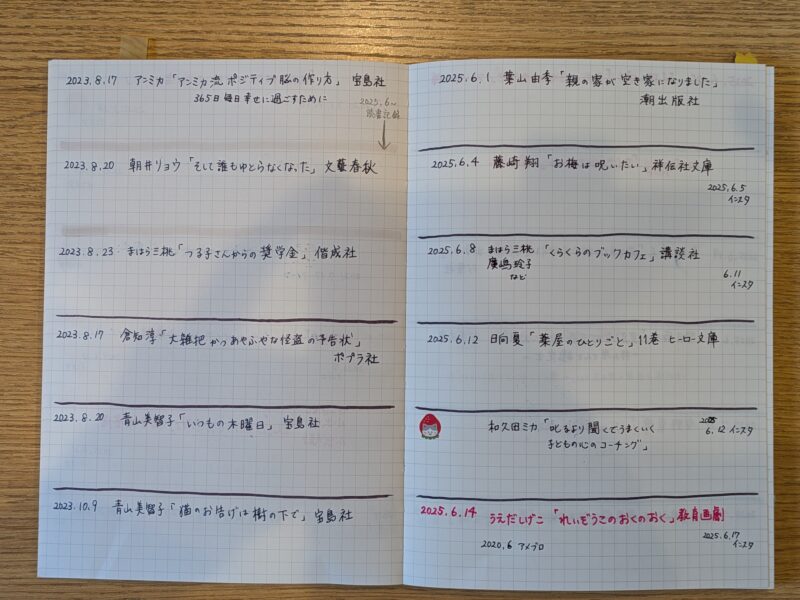 2023.8.17 アンミカ「アンミカ流 ポジティブ脳の作り方」 宝島社
365日毎日幸せに過ごすために
2025.6〜
読書記録
2023.8.20 朝井リョウ「そして誰もゆとらなくなった」文藝春秋
2023.8.23. まはら三桃「つる子さんからの奨学金」偕成社
2023.8.17 倉知淳「大雑把かつあやふやな怪盗の予告状」
ポプラ社
2023.8.20 青山美智子「いつもの木曜日」宝島社
2023.10.9 青山美智子「猫のお告げは樹の下で」宝島社
2025.6.1 葉山由季「親の家が空き家になりました」
潮出版社
2025.6.4 藤崎翔「お梅は呪いたい」祥伝社文庫
2025.6.5
インスタ
2025.6.8 まはら三桃「くらくらのブックカフェ」講談社
廣嶋玲子
など
6.11
インスタ
2025.6.12 日向夏「薬屋のひとりごと」11巻 ヒーロー文庫
和久田ミカ「叱るより聞くでうまくいく
子どもの心のコーチング」
2025
6.12 インスタ
2025.6.14 うえだしげこ「れいぞうこのおくのおく」教育画劇
2020.6 アメブロ
2025.6.17
インスタ